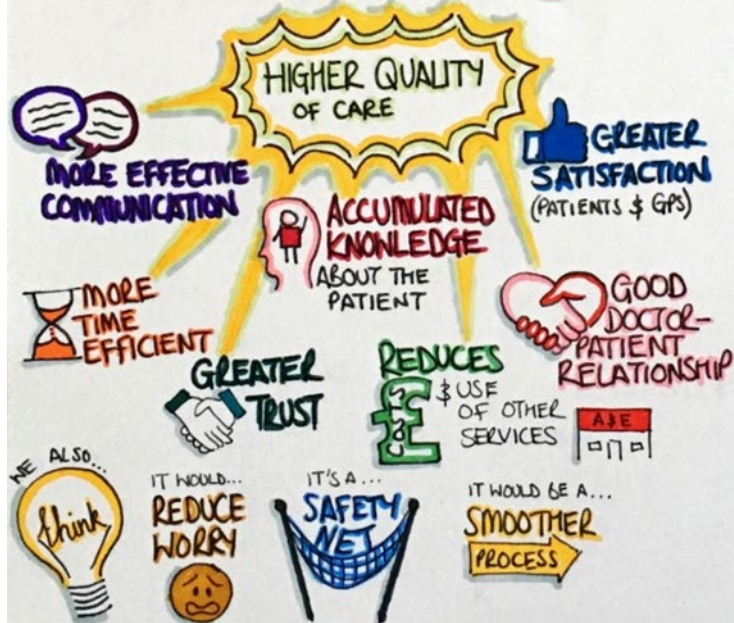 HIGHER QUALITY
OF CARE
MORE EFFECTIVE
COMMUNICATION
GREATER
SATISFACTION
(PATIENTS & GPS)
ACCUMULATED
KNOWLEDGE
ABOUT THE
PATIENT
MORE
TIME
EFFICIENT
GOOD
DOCTOR-
PATIENT
RELATIONSHIP
GREATER
TRUST
REDUCES
COSTS
& USE
OF OTHER
SERVICES
A&E
WE ALSO...
think
IT WOULD...
REDUCE
WORRY
IT'S A...
SAFETY
NET
IT WOULD BE A...
SMOOTHER
PROCESS